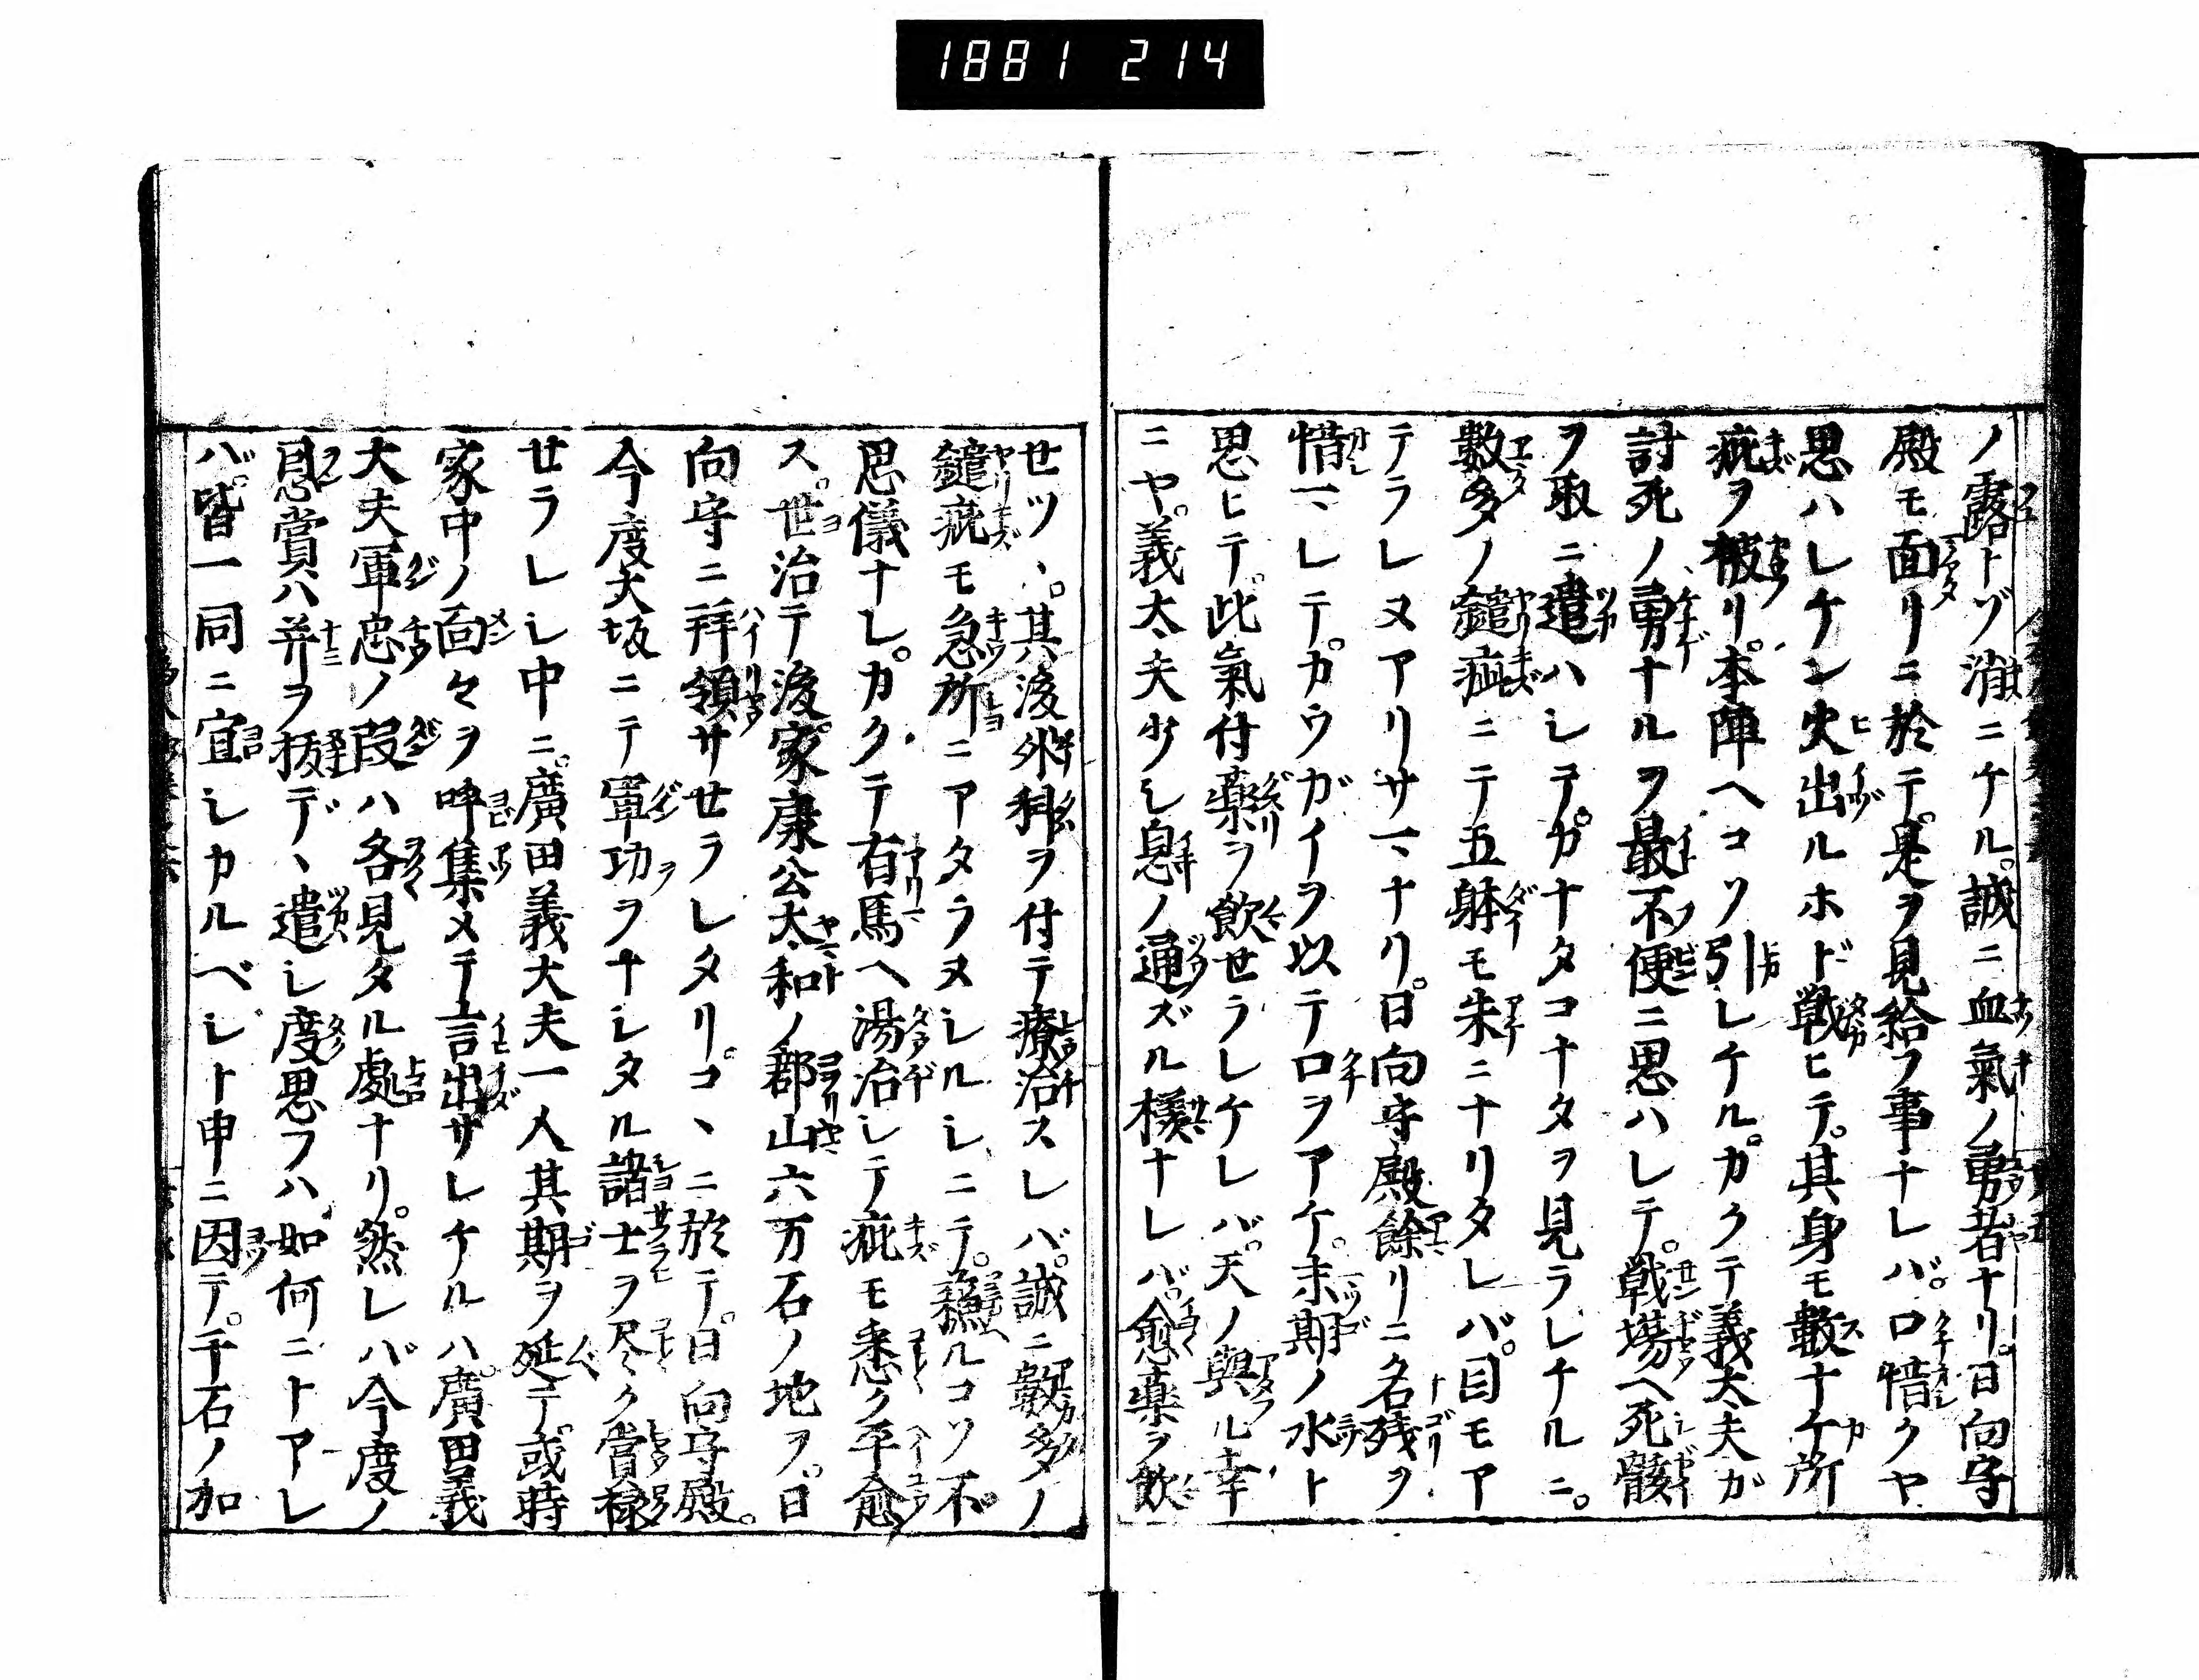 1881 214
ノ露トゾ消ニケル。誠ニ血氣ノ勇者ナリ。日向守
殿モ面リニ於テ。是ヲ見給フ事ナレバ。口惜クヤ
思ハレケン火出ルホド戦ヒテ。其身モ數十ケ所
疵ヲ被リ。本陣ヘコソ引レケル。カクテ義太夫ガ
討死ノ勇ナルヲ最不便ニ思ハレテ。戦場ヘ死骸
ヲ取ニ遣ハレテ。カナタコナタヲ見ラレナルニ。
數多ノ鑓疵ニテ五躰モ朱ニナリタレバ。目モア
テラレヌアリサマナリ。日向守殿餘リニ名残ヲ
惜マレテ。カウガイヲ以テ口ヲアケ。末期ノ水ト
思ヒテ。此氣付薬ヲ飲セラレケレバ。天ノ與ル幸
ニヤ。義太夫少シ息ノ通ズル様ナレバ。愈薬ヲ飲
セツヽ。其後外科ヲ付テ療治スレバ。誠ニ數多ノ
鑓疵モ急所ニアタラヌシルシニテ。蘓ルコソ不
思儀ナレ。カクテ有馬ヘ湯治シテ疵モ悉ク平愈
ス。世治テ後。家康公大和ノ郡山六万石ノ地ヲ。日
向守ニ拜領サセラレタリ。コヽニ於テ。日向守殿。
今度大坂ニテ軍功ヲナシタル諸士ヲ尽ク賞禄
セラレシ中ニ。廣田義大夫一人其期ヲ延テ。或時
家中ノ面々ヲ呼集メテ言出サレケルハ。廣田義
大夫軍忠ノ段ハ各見タル處ナリ。然レバ今度ノ
恩賞ハ并ヲ抜デヽ遣シ度思フハ如何ニトアレ
バ。皆一同ニ宜シカルベシト申ニ因テ。千石ノ加